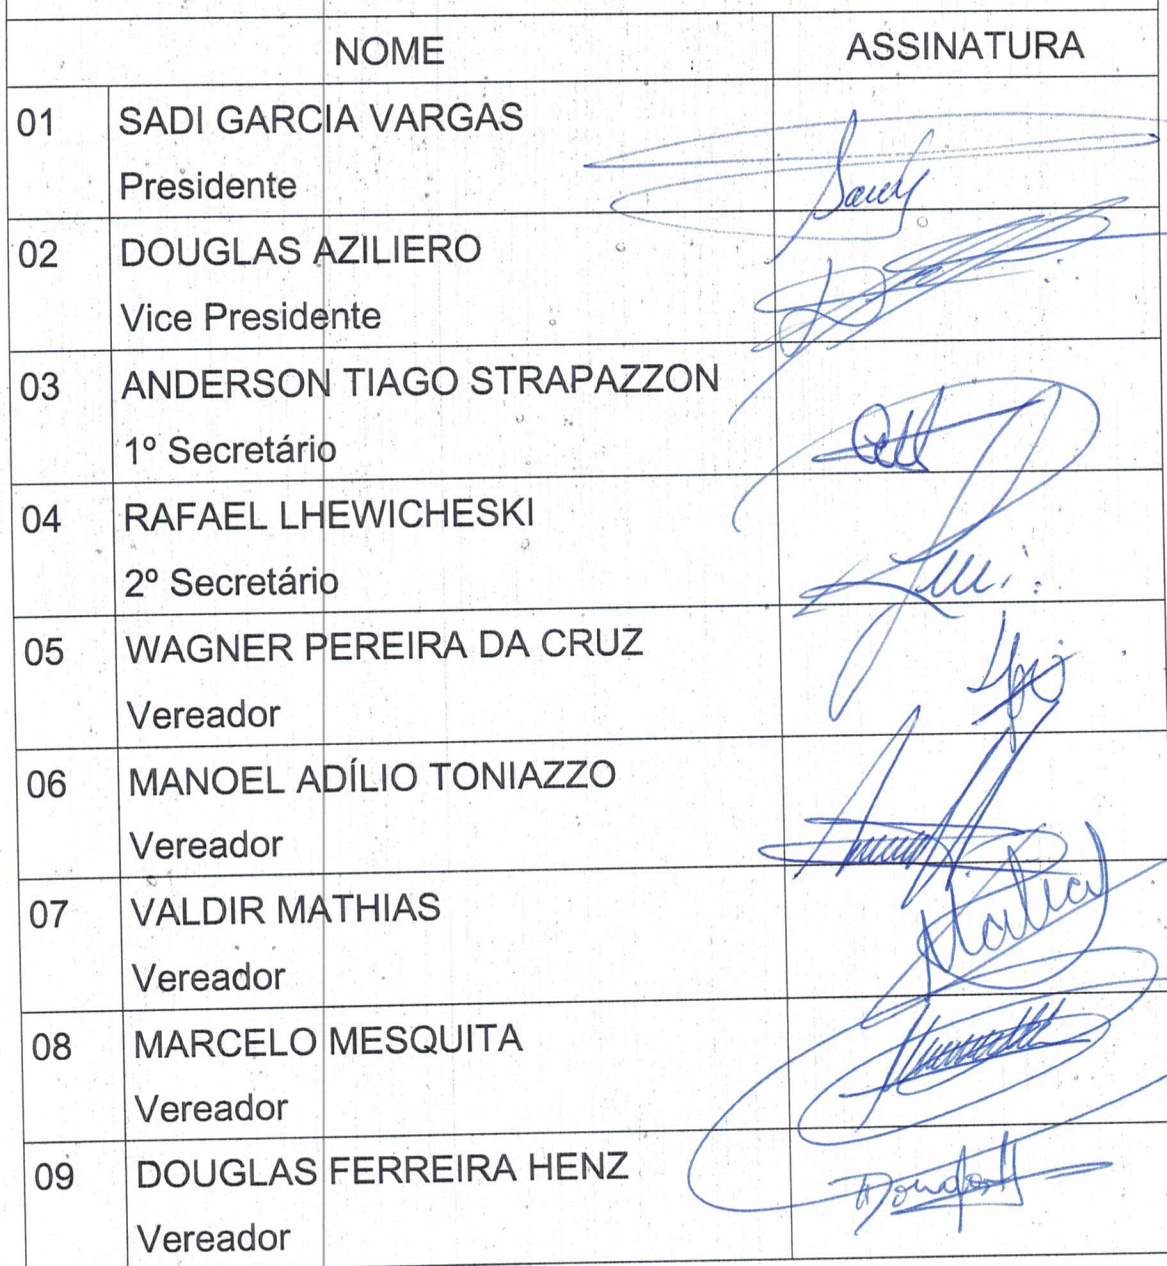 NOME ASSINATURA
01 SADI GARCIA VARGAS
Presidente
02 DOUGLAS AZILIERO
Vice Presidente
03 ANDERSON TIAGO STRAPAZZON
1º Secretário
04 RAFAEL LHEWICHESKI
2º Secretário
05 WAGNER PEREIRA DA CRUZ
Vereador
06 MANOEL ADÍLIO TONIAZZO
Vereador
07 VALDIR MATHIAS
Vereador
08 MARCELO MESQUITA
Vereador
09 DOUGLAS FERREIRA HENZ
Vereador